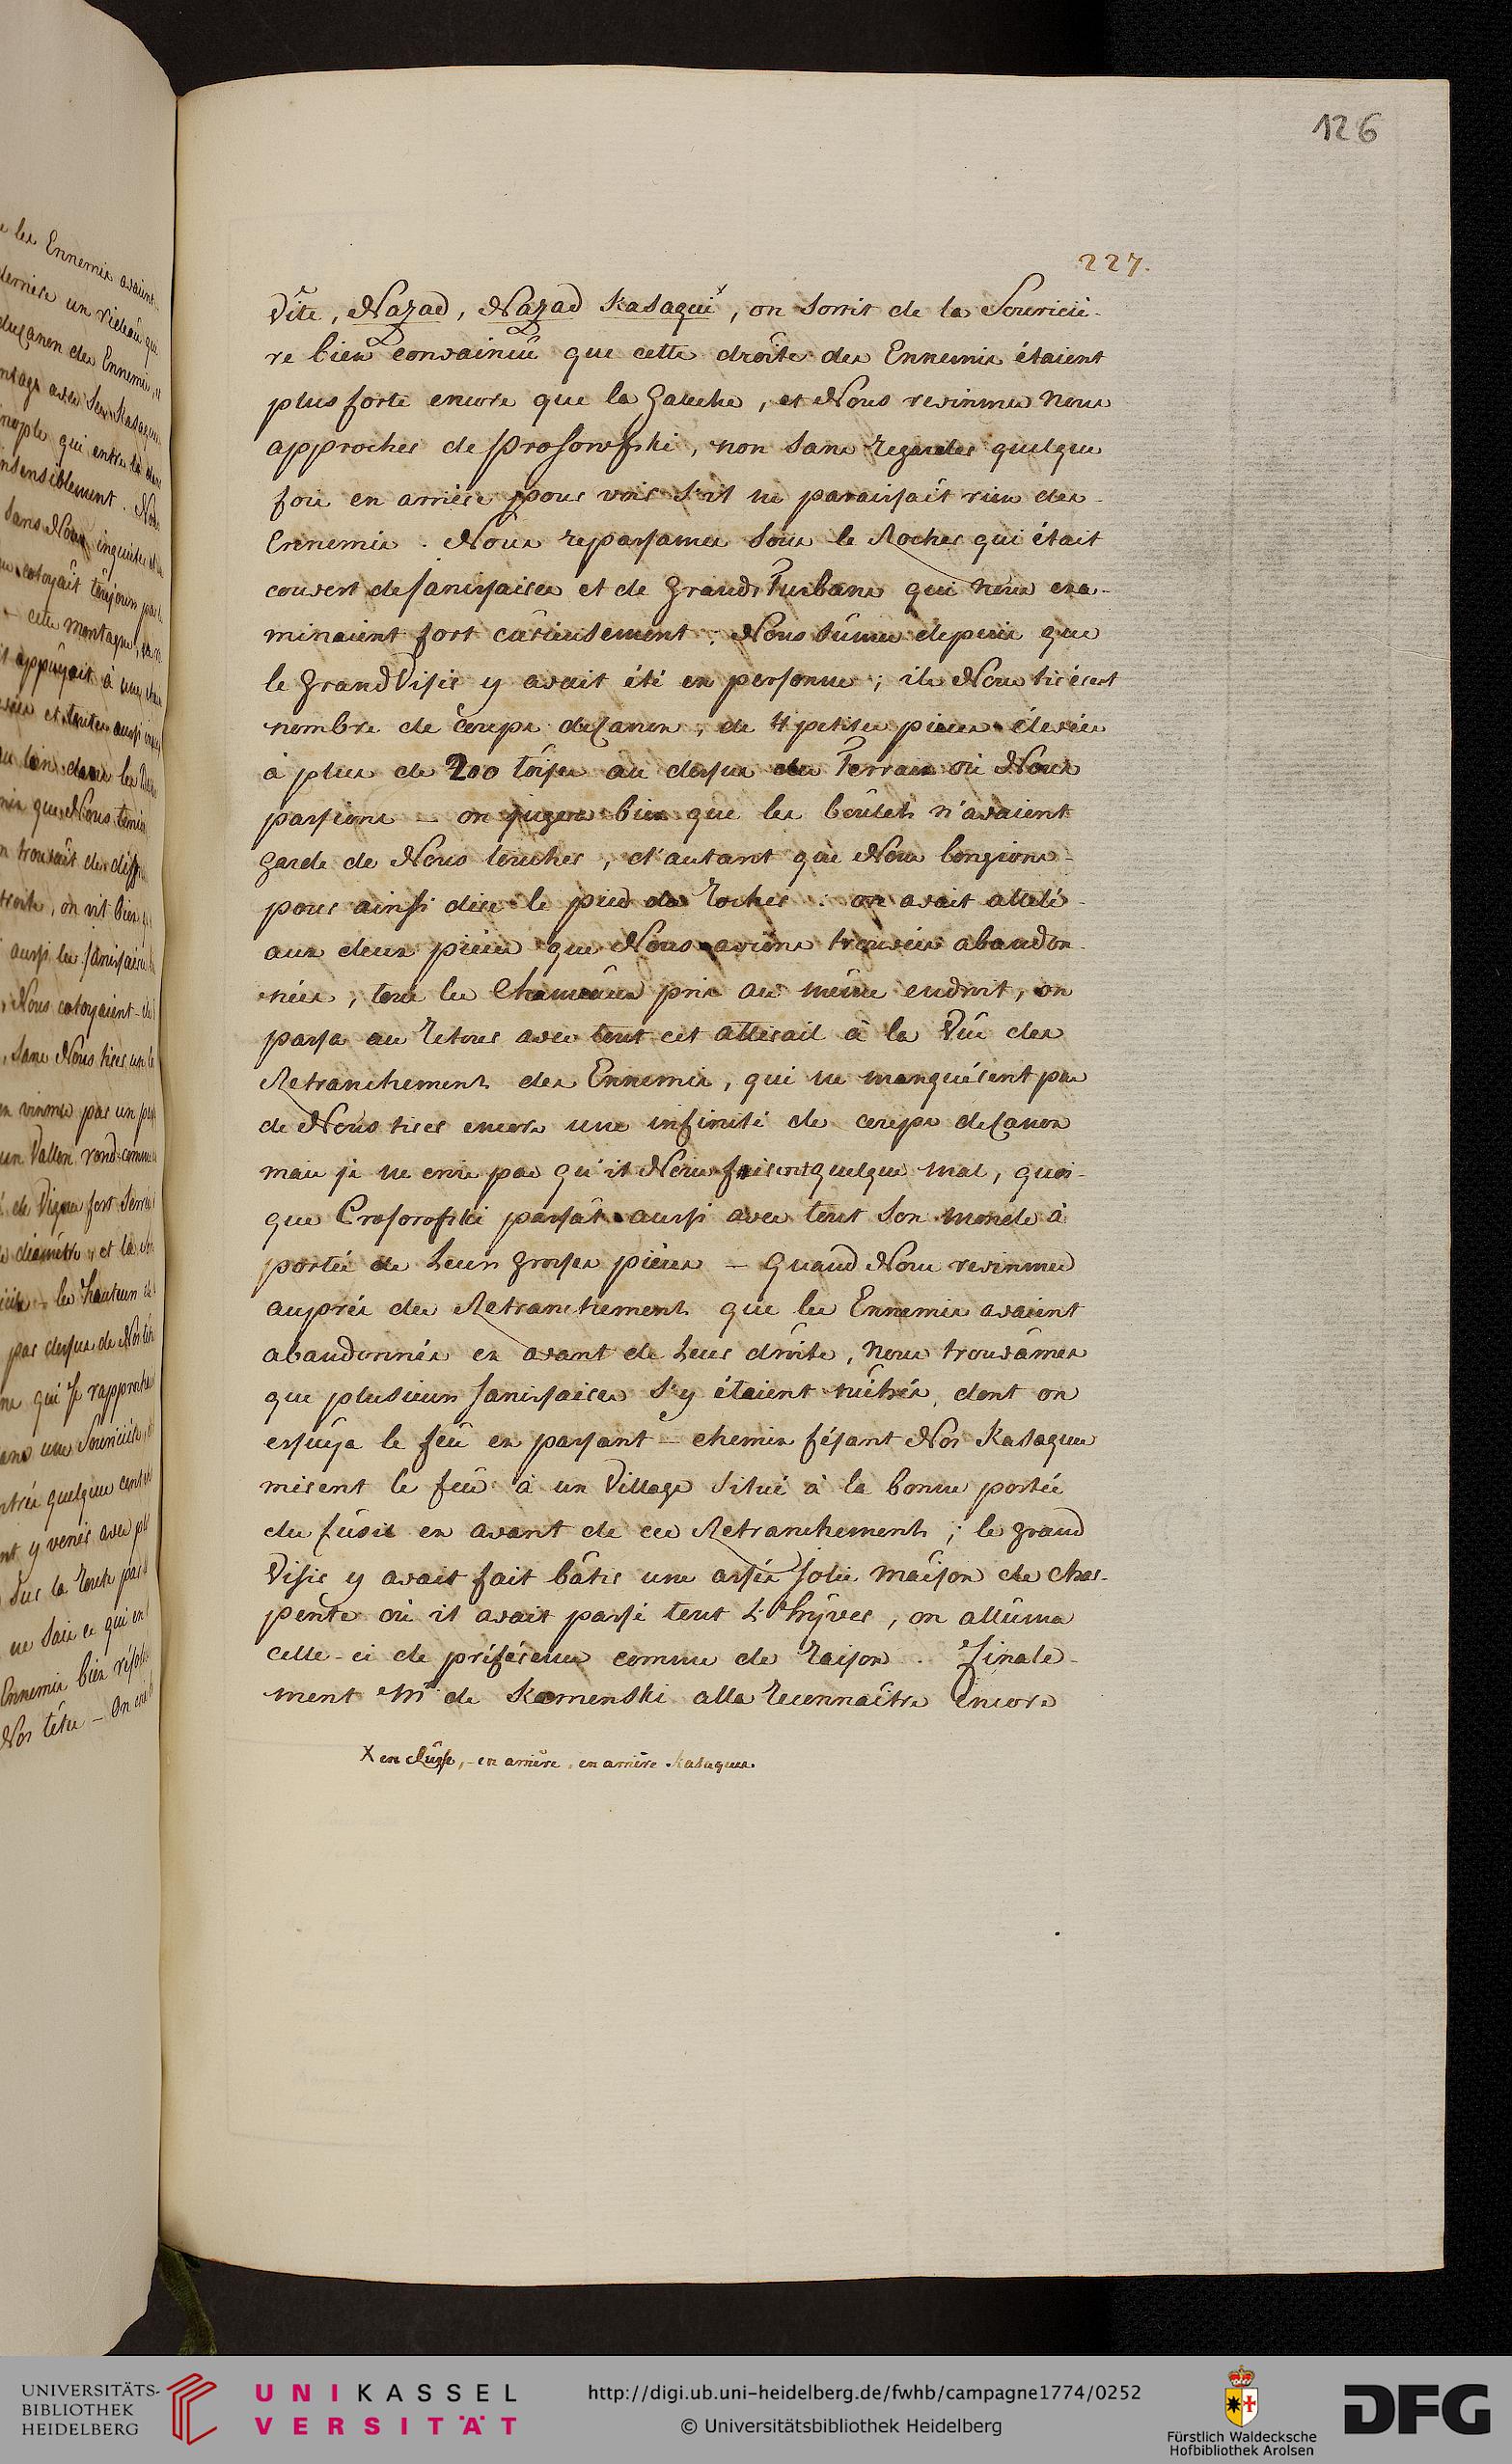 126
227.
Vite, Nazad, Nazad Kasaqui x, on sortit de la Souriciè-
re bien convaincû que cette droite des Ennemis étaient
plus forte encore que la Gauche, et Nous revinmes nous
approcher de Prosorofski, non sans regarder quelque
fois en arrière pour voir s'il ne paraissait rien des
Ennemis. Nous repassames sous le Rocher qui était
couvert de Janissaires et de grands Turbans qui nous exa-
minaient fort curieusement; Nous sumes depuis que
le Grand Visir y avait été en personne; ils Nous tirèrent
nombre de coups de Canon, de 4 petites pièces élevées
à plus de 200 toises au dessus du Terrain où Nous
passions – on jugera bien que les boulets n'avaient
garde de Nous toucher, d'autant que Nous longions
pour ainsi dire le pied du Rocher. on avait attelé
aux deux pièces que Nous avions trouvées abandon-
nées, tous les Chameaux pris au même endroit, on
passa au retour avec tout cet attirail à la Vuë des
Retranchements des Ennemis, qui ne manquèrent pas
de Nous tirer encore une infinité de coups de Canon
mais je ne crois pas qu'il Nous firent quelque mal, quoi-
que Prosorofski passât aussi avec tout Son monde à
portée de Leurs grosses pièces – Quand Nous revinmes
auprès des Retranchements que les Ennemis avaient
abandonnés en avant de Leur droite, nous trouvâmes
que plusieurs Janissaires s'y étaient nichés, dont on
essuya le feû en passant – chemin fésant Nos Kasaques
mirent le feû à un Village situé à la bonne portée
du fusil en avant de ces Retranchements; le grand
Visir y avait fait bâtir une assés jolie maison de char-
pente où il avait passé tout L'hÿver, on alluma
celle-ci de préférence comme de raison. Finale-
ment Mr de Kamenski alla reconnaître encore
X en Russe, – en arrière, en arrière Kasaques.
UNIVERSITÄTS-
BIBLIOTHEK
HEIDELBERG
UNIKASSEL
VERSITÄT
http://digi.ub.uni-heidelberg.de/fwhb/campagne1774/0252
© Universitätsbibliothek Heidelberg
Fürstlich Waldecksche
Hofbibliothek Arolsen
DFG